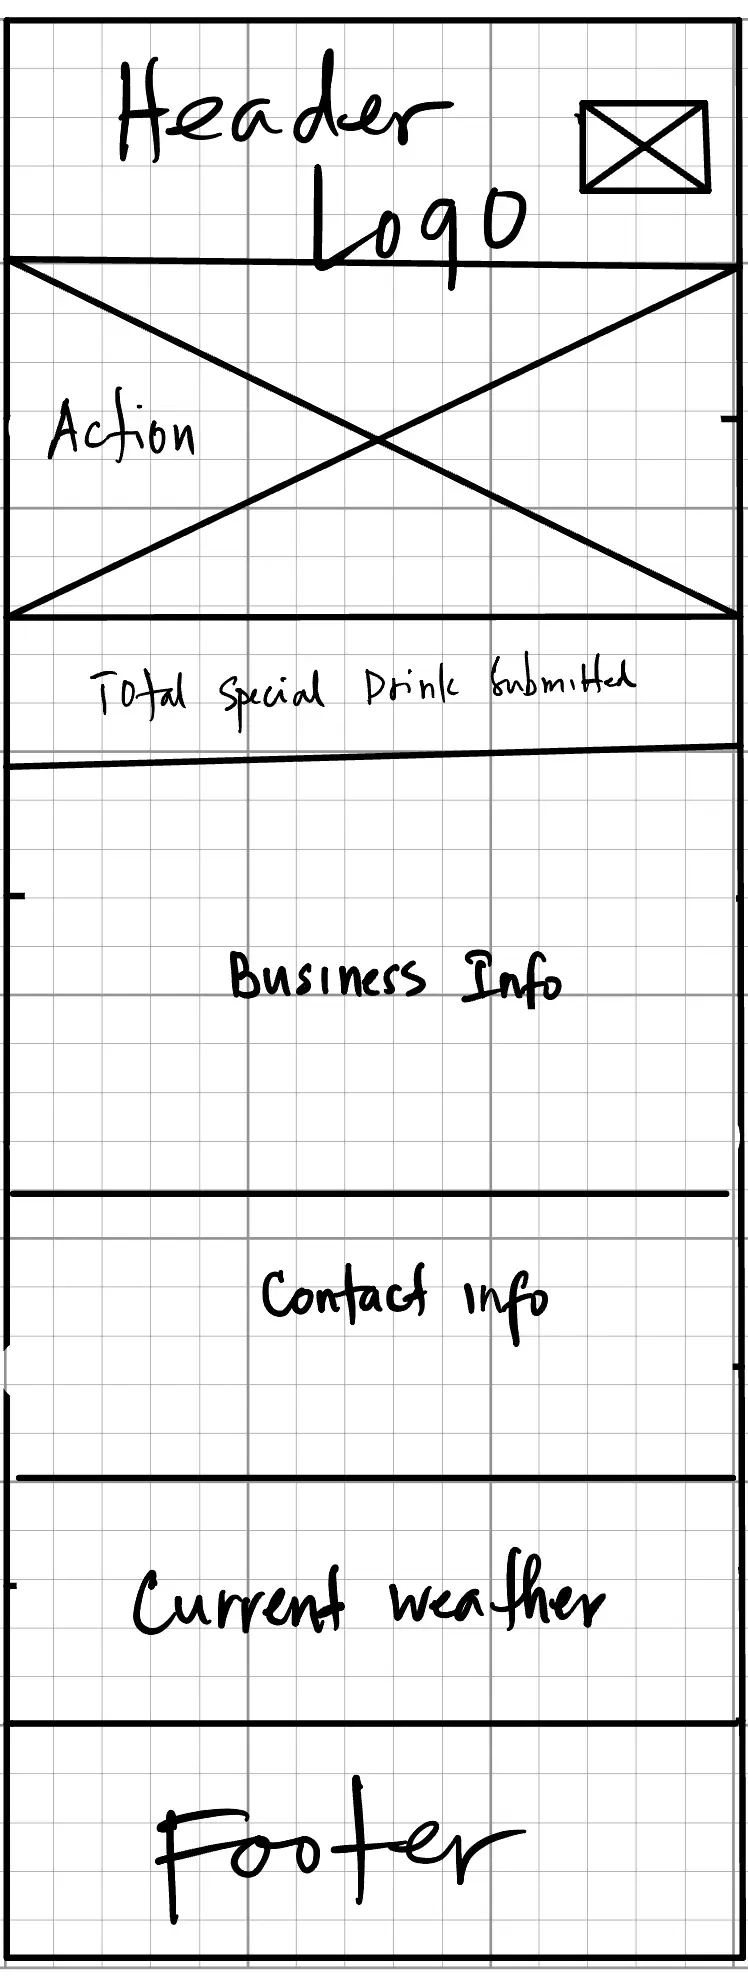 Header
Logo
Action
Total Special Drink Submitted
Business Info
Contact info
Current weather
Footer